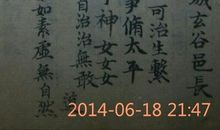 城玄谷邑長
可治生繫
事脩太平
神女女女
自治治無敢
如素虛無自然
2014-06-18 21:47